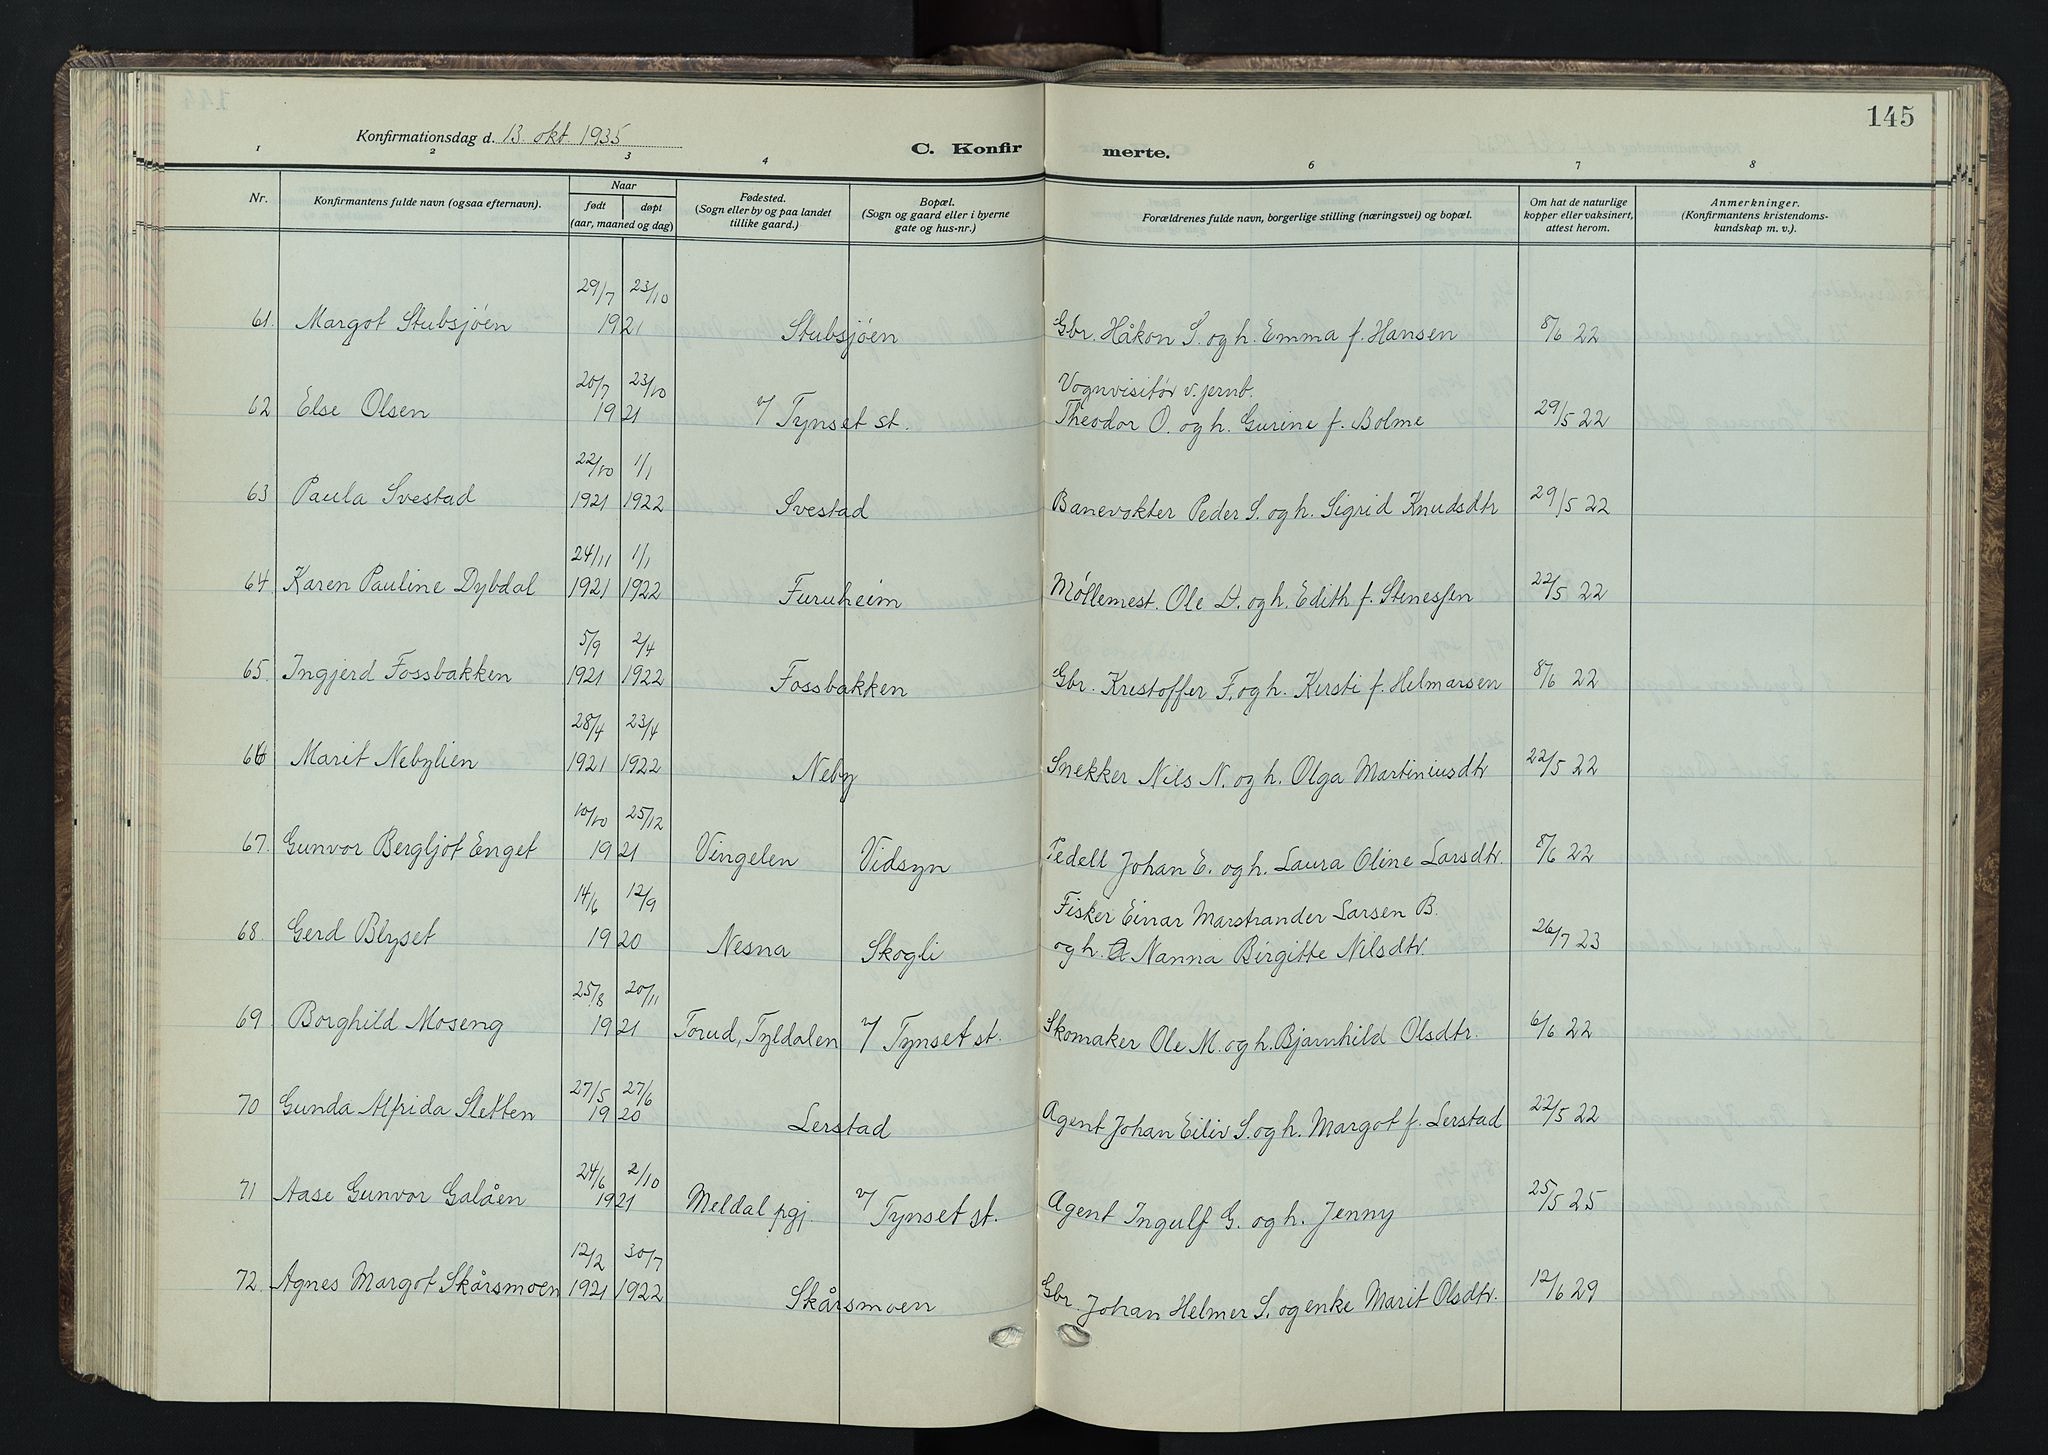 145
Konfirmationsdag d. 13. okt 1935
C. Konfirmerte.
1 2 3 4 5 6 7 8
Nr. Konfirmantens fulde navn (ogsaa efternavn). Naar født døpt (aar, maaned og dag) Fødested. (Sogn eller by og paa landet tillike gaard.) Bopæl. (Sogn og gaard eller i byerne gate og hus-nr.) Forældrenes fulde navn, borgerlige stilling (næringsvei) og bopæl. Om hat de naturlige kopper eller vaksinert, attest herom. Anmerkninger. (Konfirmantens kristendoms-kundskap m. v.).
29/7 23/10
61. Margot Stubsjøen 1921 Stubsjøen Gbr. Håkon S. og h. Emma f. Hansen 8/6 22
20/7 23/10 Vognvisitør v. jernb.
62 Else Olsen 1921 v/ Tynset st. Theodor O. og h. Gurine f. Bolme 29/5 22
22/10 1/1
63 Paula Svestad 1921 1922 Svestad Banevokter Peder S. og h. Sigrid Knudsdtr 29/5 22
24/11 1/1
64 Karen Pauline Dybdal 1921 1922 Furuheim Møllemest. Ole D. og h. Edith f. Stenessen 22/5 22
5/9 2/4
65. Ingjerd Fossbakken 1921 1922 Fossbakken Gbr. Kristoffer F. og h. Kirsti f. Helmarsen 8/6 22
28/4 23/4
66 Marit Nebylien 1921 1922 Neby Snekker Nils N. og h. Olga Martiniusdtr 22/5 22
10/10 25/12
67. Gunvor Bergljot Enget 1921 Vingelen Vidsyn Pedell Johan E. og h. Laura Oline Larsdtr. 8/6 22
14/6 12/9 Fisker Einar Marstrander Larsen B.
68. Gerd Blyset 1920 Nesna Skogli og h. Nanna Birgitte Nilsdtr. 26/7 23
25/8 20/11
69 Borghild Moseng 1921 Torud, Tyldalen v/ Tynset st. Skomaker Ole M. og h. Bjarnhild Olsdtr. 6/6 22
27/5 27/6
70 Gunda Alfrida Sletten 1920 Lerstad Agent Johan Eiliv S. og h. Margot f. Lerstad 22/5 22
24/6 2/10
71 Aase Gunvor Galåen 1921 Meldal pgj. v/ Tynset st. Agent Ingulf G. og h. Jenny 25/5 25
12/2 30/7
72. Agnes Margot Skårsmoen 1921 1922 Skårsmoen Gbr. Johan Helmer S. og enke Marit Olsdtr. 12/6 29